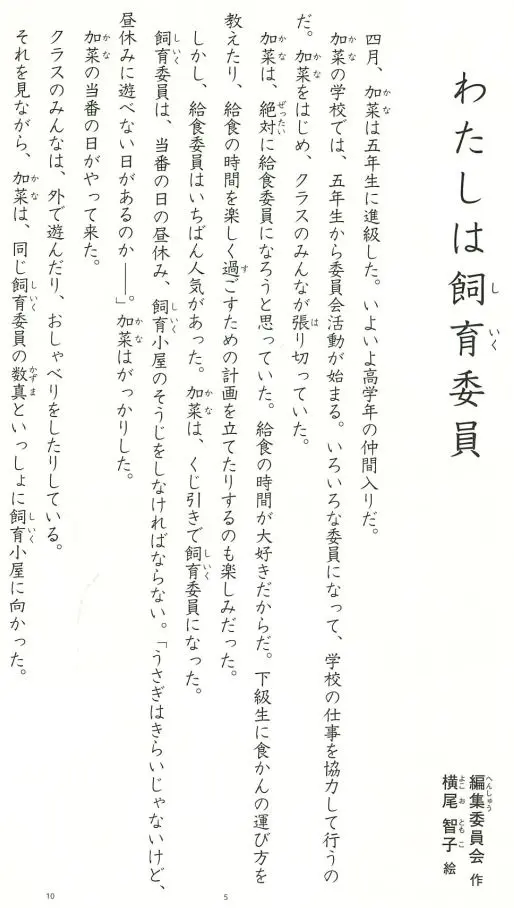 わたしは飼育委員
しいく
編集委員会 作
へんしゅう
横尾 智子 絵
よこお ともこ
四月、加菜は五年生に進級した。いよいよ高学年の仲間入りだ。
加菜の学校では、五年生から委員会活動が始まる。いろいろな委員になって、学校の仕事を協力して行うの
だ。加菜をはじめ、クラスのみんなが張り切っていた。
加菜は、絶対に給食委員になろうと思っていた。給食の時間が大好きだからだ。下級生に食かんの運び方を
教えたり、給食の時間を楽しく過ごすための計画を立てたりするのも楽しみだった。
しかし、給食委員はいちばん人気があった。加菜は、くじ引きで飼育委員になった。
飼育委員は、当番の日の昼休み、飼育小屋のそうじをしなければならない。「うさぎはきらいじゃないけど、
昼休みに遊べない日があるのか――」。加菜はがっかりした。
加菜の当番の日がやって来た。
クラスのみんなは、外で遊んだり、おしゃべりをしたりしている。
それを見ながら、加菜は、同じ飼育委員の数真といっしょに飼育小屋に向かった。
5
10